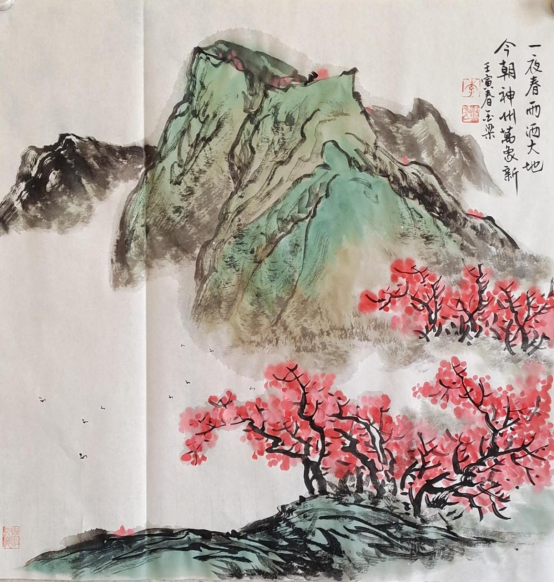 一夜春雨洒大地
今朝神州萬象新
壬寅春玉梁